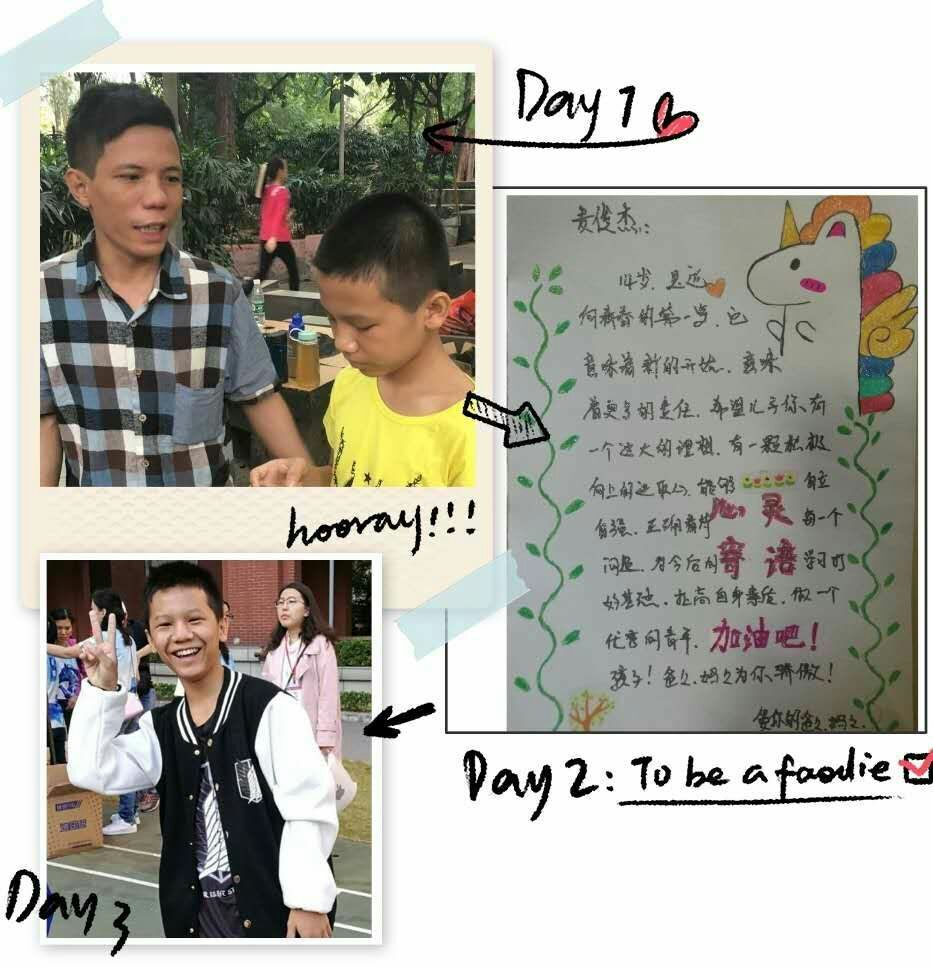 Day 1
hooray!!!
俊杰：
14岁，是迈
向青春的第一步，它
意味着新的开始，意味
着更多的责任，希望儿子你有
一个远大的理想，有一颗积极
向上的进取心，能够 自立
自强，正确看待 心灵 每一个
问题，为今后的 寄语 学习打
好基础，提高自身素质，做一个
优秀的青年，加油吧！
孩子！爸爸、妈妈为你骄傲！
爱你的爸爸、妈妈
Day 2: To be a foodie
Day 3